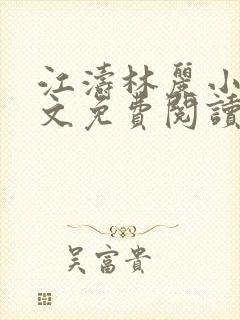 江濤林麗小
文免費閱讀
吳富貴